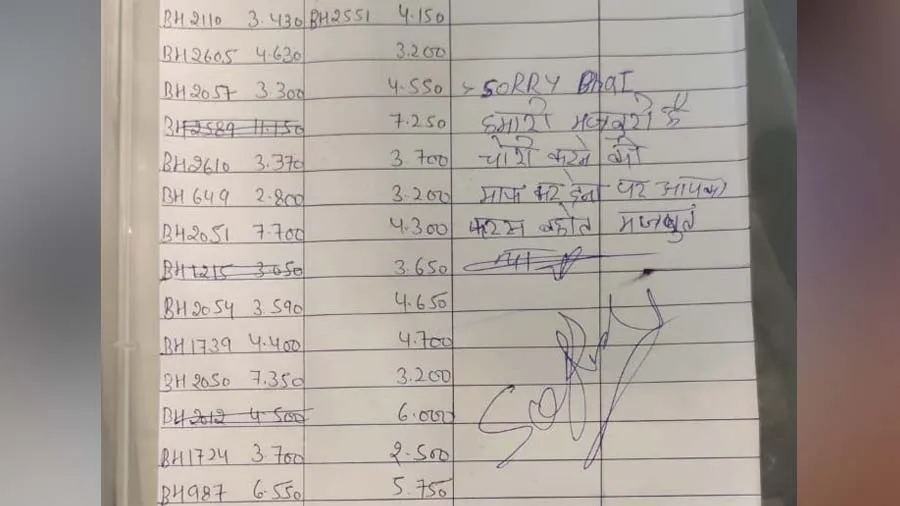 BH2110 3.430 BH2551 4.150
BH2605 4.630 3.200
BH2057 3.300 4.550 > SORRY BhaI
BH2589 11.150 7.250 हमारी मजबुरी है
BH2610 3.370 3.700 चोरी करने की
BH649 2.800 3.200 माफ कर देना पर आपका
BH2051 7.700 4.300 बहोत मजबुत
BH1215 3.050 3.650 था
BH2054 3.590 4.650
BH1739 4.400 4.700
BH2050 7.350 3.200
BH2012 4.500 6.000 SORRY
BH1724 3.700 2.500
BH987 6.550 5.750